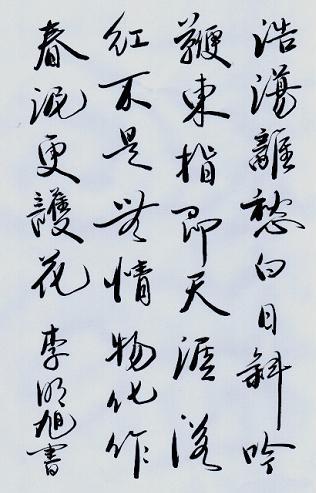 浩蕩離愁白日斜吟
鞭東指即天涯落
紅不是無情物化作
春泥更護花 李明旭書